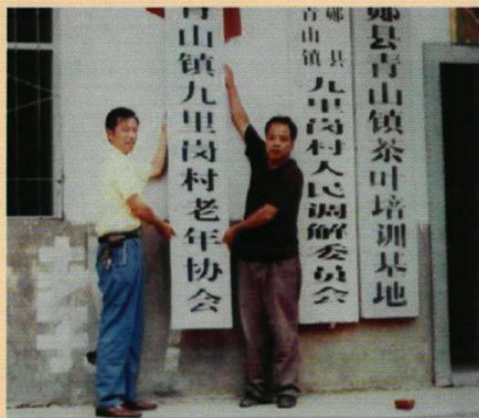 青山镇九里岗村老年协会
郧县
青山镇
九里岗村人民调解委员会
郧县青山镇茶叶培训基地